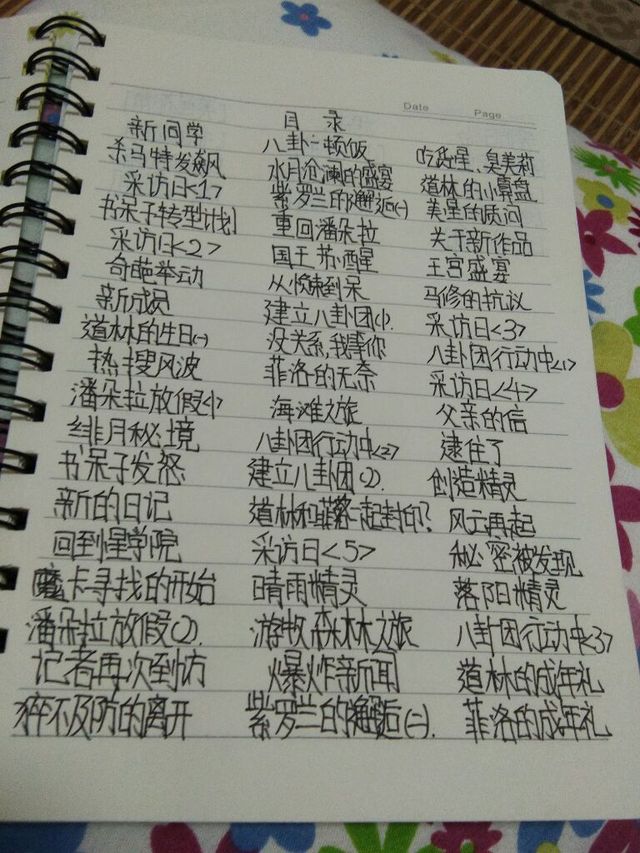 Date Page
目录
新同学 八卦一顿饭 吃货星、臭美莉
杀马特发飙 水月沧澜的盛宴 道林的小算盘
采访日<1> 紫罗兰的邂逅(一) 美星的质问
书呆子转型计划 重回潘朵拉 关于新作品
采访日<2> 国王苏醒 王宫盛宴
奇葩举动 从惊悚到呆 马修的抗议
新成员 建立八卦团(1). 采访日<3>
道林的生日(一) 没关系,我等你 八卦团行动中<1>
热搜风波 菲洛的无奈 采访日<4>
潘朵拉放假(1) 海滩之旅 父亲的信
绯月秘境 八卦团行动中<2> 逮住了
书呆子发怒 建立八卦团(2). 创造精灵
新的日记 道林和菲洛一起封印? 风云再起
回到惺学院 采访日<5> 秘密被发现
魔卡寻找的开始 晴雨精灵 落阳精灵
潘朵拉放假(2). 游牧森林之旅 八卦团行动中<3>
记者再次到访 爆炸新闻 道林的成年礼
猝不及防的离开 紫罗兰的邂逅(二). 菲洛的成年礼